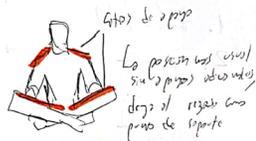 sitios de apoyo
La posición mas usual
sin apoyos adicionales
deja al regazo como
punto de soporte